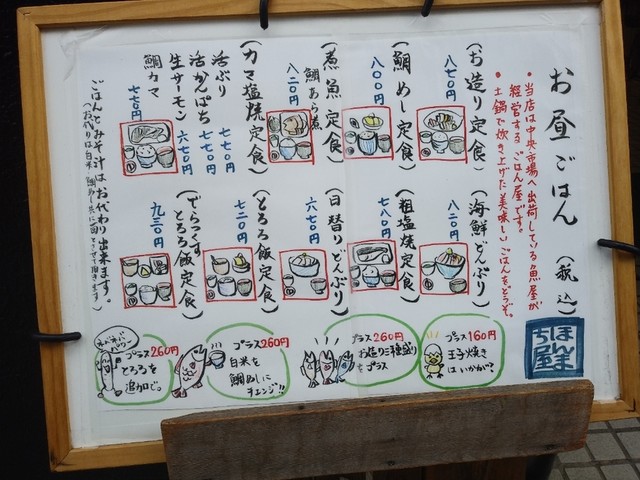 お昼ごはん（税込）
・当店は中央市場へ出荷している魚屋が
経営するごはん屋です。
・土鍋で炊き上げた美味しいごはんをどうぞ。
（お造り定食）
八七〇円
（鯛めし定食）
八〇〇円
（煮魚定食）
鯛あら煮
八二〇円
（カマ塩焼定食）
活ぶり 七七〇円
活かんぱち 七七〇円
生サーモン 六七〇円
鯛カマ
七七〇円
（海鮮どんぶり）
八二〇円
（粗塩焼定食）
七八〇円
（日替りどんぶり）
六七〇円
（とろろ飯定食）
七二〇円
（でらっくす
とろろ飯定食）
九二〇円
ごはんとみそ汁はおかわり出来ます。
プラス160円
玉子焼き
はいかが？
プラス260円
お造り三種盛り
をプラス
プラス260円
白米を
鯛めしに
チェンジ!!
ネバネバ
パワー
プラス260円
とろろを
追加で。
ほんまち屋